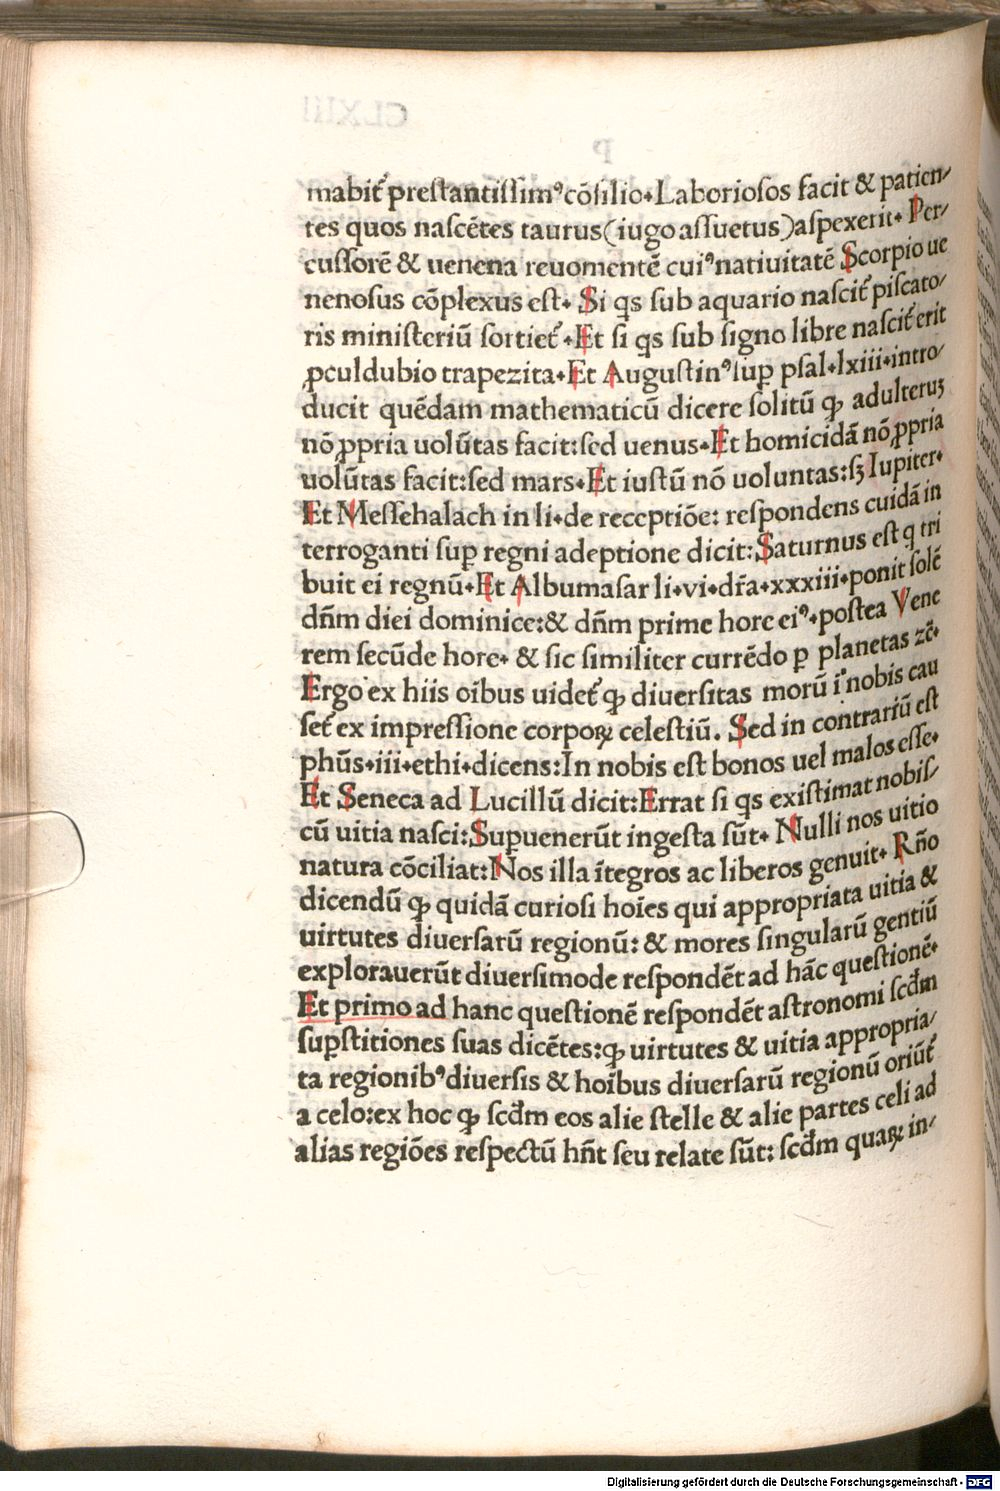 mabit᷑ prestantissimꝰ cōsilio. Laboriosos facit & patien/
tes quos nascētes taurus (iugo assuetus) aspexerit. Per/
cussorē & uenena reuomentē cuiꝰ natiuitatē Scorpio ue
nenosus cōplexus est. Si qs sub aquario nascit᷑ piscato/
ris ministeriū sortiet᷑. Et si qs sub signo libre nascit᷑ erit
ꝓculdubio trapezita. Et Augustinꝰ sup̱ psal. lxiii. intro/
ducit quēdam mathematicū dicere solitū ꝙ adulteruꝫ
nō ꝓpria uolūtas facit: sed uenus. Et homicidā nō ꝓpria
uolūtas facit: sed mars. Et iustū nō uoluntas: sꝫ Iupiter.
Et Messehalach in li. de receptiōe: respondens cuidā in
terroganti sup̱ regni adeptione dicit: Saturnus est q tri
buit ei regnū. Et Albumasar li. vi. dr̄a. xxxiii. ponit solē
dn̄m diei dominice: & dn̄m prime hore eiꝰ. postea Vene
rem secūde hore. & sic similiter currēdo ꝑ planetas zc̄.
Ergo ex hiis oībus uidet᷑ ꝙ diuersitas morū ī nobis cau
set᷑ ex impressione corpoꝝ celestiū. Sed in contrariū est
phūs. iii. ethi. dicens: In nobis est bonos uel malos esse.
Et Seneca ad Lucillū dicit: Errat si qs existimat nobis/
cū uitia nasci: Supuenerūt ingesta sūt. Nulli nos uitio
natura cōciliat: Nos illa ītegros ac liberos genuit. Rn̄o
dicendū ꝙ quidā curiosi hoīes qui appropriata uitia &
uirtutes diuersarū regionū: & mores singularū gentiū
explorauerūt diuersimode respondēt ad hāc questionē.
Et primo ad hanc questionē respondēt astronomi scd̄m
sup̱stitiones suas dicētes: ꝙ uirtutes & uitia appropria/
ta regionibꝰ diuersis & hoībus diuersarū regionū oriūt᷑
a celo: ex hoc ꝙ scd̄m eos alie stelle & alie partes celi ad
alias regiōes respectū hn̄t seu relate sūt: scd̄m quaꝝ in/
Digitalisierung gefördert durch die Deutsche Forschungsgemeinschaft - DFG